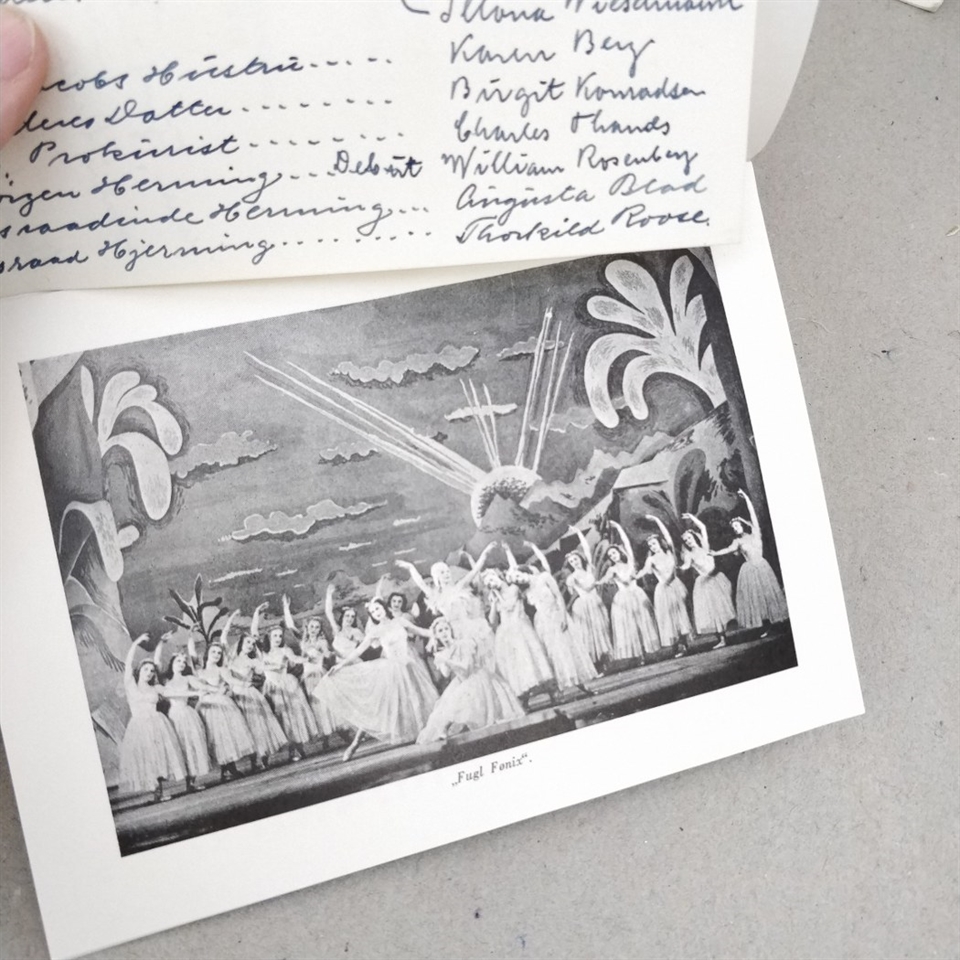 Illona Wieselmann
Jacobs Hustru..... Karen Berg
deres Datter........ Birgit Konradsen
Prokurist....... Charles Thands
Herming... Debut William Rosenberg
Herming... Augusta Blad
Hjerming......... Thorkild Roose.
„Fugl Fønix“.